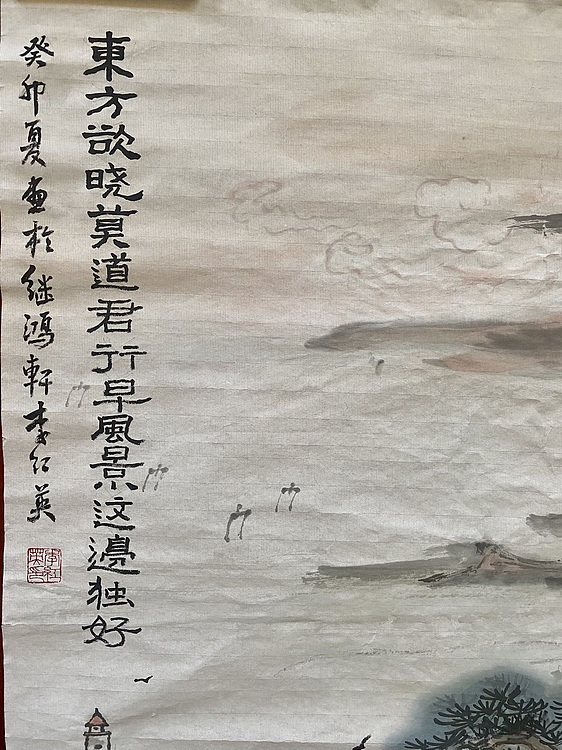 東方欲晓莫道君行早風景这邊独好
癸卯夏画於继鸿軒李红英